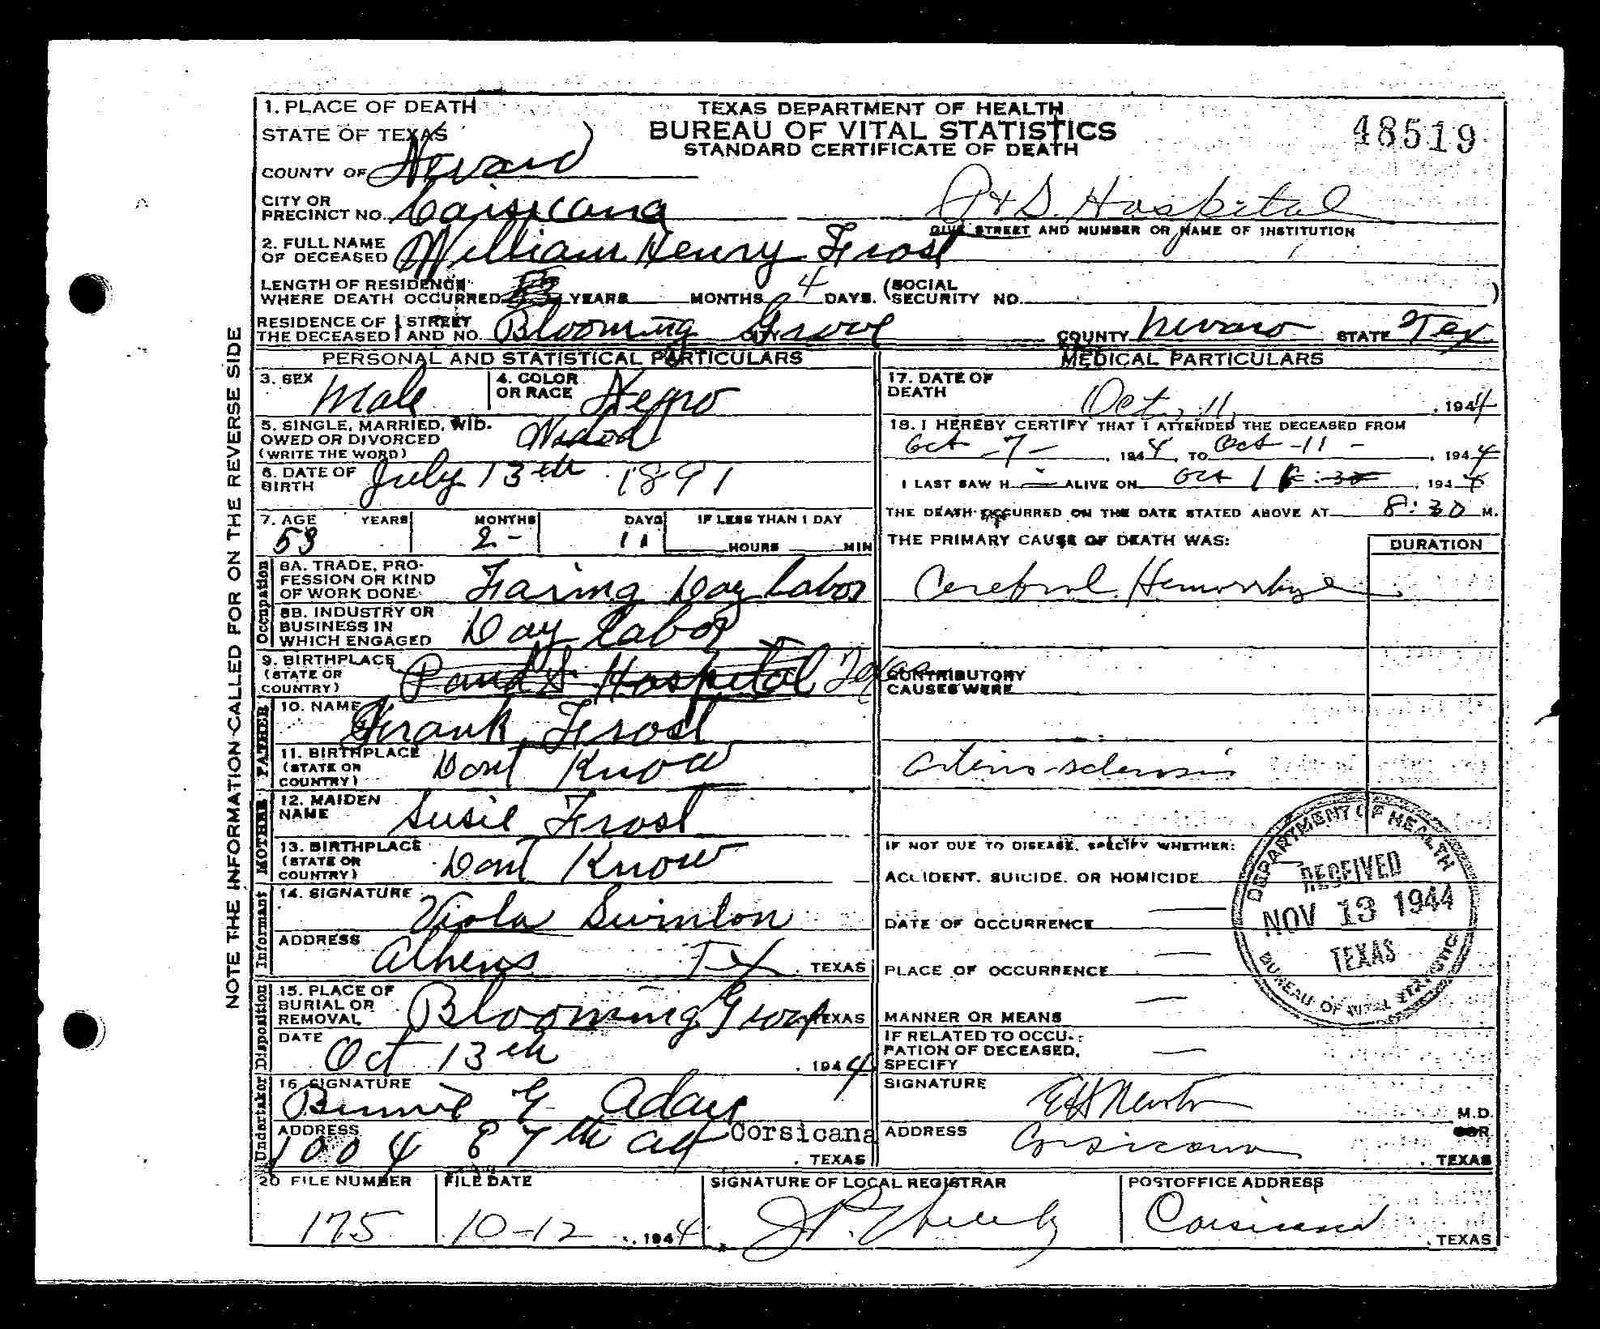 1. PLACE OF DEATH
STATE OF TEXAS
COUNTY OF
CITY OR
PRECINCT NO.
TEXAS DEPARTMENT OF HEALTH
BUREAU OF VITAL STATISTICS
STANDARD CERTIFICATE OF DEATH
48519
P & S. Hospital
GIVE STREET AND NUMBER OR NAME OF INSTITUTION
2. FULL NAME
OF DECEASED William Henry Frost
LENGTH OF RESIDENCE
WHERE DEATH OCCURRED YEARS MONTHS 4 DAYS. (SOCIAL
SECURITY NO. )
RESIDENCE OF STREET
THE DECEASED AND NO. Blooming Grove CITY COUNTY Nivaro STATE Tex
PERSONAL AND STATISTICAL PARTICULARS
3. SEX Male
4. COLOR
OR RACE Negro
5. SINGLE, MARRIED, WID-
OWED OR DIVORCED
(WRITE THE WORD)
6. DATE OF
BIRTH July 13th 1891
7. AGE YEARS MONTHS DAYS IF LESS THAN 1 DAY
53 2- 11 HOURS MIN
Occupation
8A. TRADE, PRO-
FESSION OR KIND
OF WORK DONE Faring Day Labor
8B. INDUSTRY OR
BUSINESS IN
WHICH ENGAGED Day Labor
9. BIRTHPLACE
(STATE OR
COUNTRY) P and S Hospital Texas
FATHER
10. NAME Frank Frost
11. BIRTHPLACE
(STATE OR
COUNTRY) Dont Know
MOTHER
12. MAIDEN
NAME Susie Frost
13. BIRTHPLACE
(STATE OR
COUNTRY) Dont Know
Informant
14. SIGNATURE Viola Swinton
ADDRESS
Athens Tex TEXAS
Disposition
15. PLACE OF
BURIAL OR
REMOVAL Blooming Grove TEXAS
DATE
Oct 13th , 1944
Undertaker
16 SIGNATURE
Adair
ADDRESS
1004 E 7th Corsicana
. TEXAS
MEDICAL PARTICULARS
17. DATE OF
DEATH Oct, 11, , 1944
18. I HEREBY CERTIFY THAT I ATTENDED THE DECEASED FROM
Oct -7- , 1944, TO Oct -11- , 1944
I LAST SAW H ALIVE ON Oct 11 , 1944
THE DEATH OCCURRED ON THE DATE STATED ABOVE AT 8:30 M.
THE PRIMARY CAUSE OF DEATH WAS:
DURATION
Cerebral Hemorrhage
CONTRIBUTORY
CAUSES WERE
Arterio-sclerosis
IF NOT DUE TO DISEASE, SPECIFY WHETHER:
ACCIDENT, SUICIDE, OR HOMICIDE
DATE OF OCCURRENCE
PLACE OF OCCURRENCE
MANNER OR MEANS
IF RELATED TO OCCU-
PATION OF DECEASED,
SPECIFY
SIGNATURE EH Newton M.D.
ADDRESS Corsicana . TEXAS
DEPARTMENT OF HEALTH
RECEIVED
NOV 13 1944
TEXAS
BUREAU OF VITAL STATISTICS
20 FILE NUMBER
175
FILE DATE
10-12 , 1944
SIGNATURE OF LOCAL REGISTRAR
POSTOFFICE ADDRESS
Corsicana
. TEXAS
NOTE THE INFORMATION CALLED FOR ON THE REVERSE SIDE